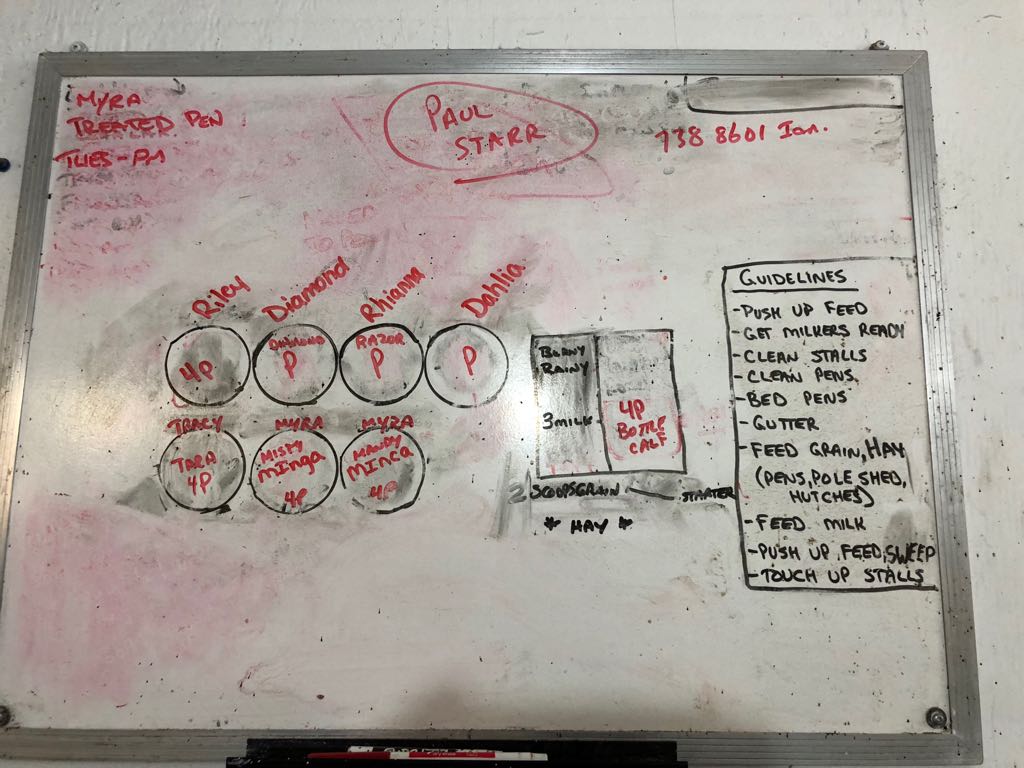 MYRA
TREATED PEN
TUES-PM
PAUL
STARR
738 8601 Ian.
Riley
Diamond
Rhianna
Dahlia
4P
DIAMOND
P
RAZOR
P
P
TRACY
MYRA
MYRA
TARA
4P
MISTY
MINGA
4P
MANDY
MINCA
4P
RAINY
3 MILK
4P
BOTTLE
CALF
2 SCOOPS GRAIN
STARTER
* HAY *
GUIDELINES
- PUSH UP FEED
- GET MILKERS READY
- CLEAN STALLS
- CLEAN PENS
- BED PENS
- GUTTER
- FEED GRAIN, HAY
(PENS, POLE SHED,
HUTCHES)
- FEED MILK
- PUSH UP FEED, SWEEP
- TOUCH UP STALLS